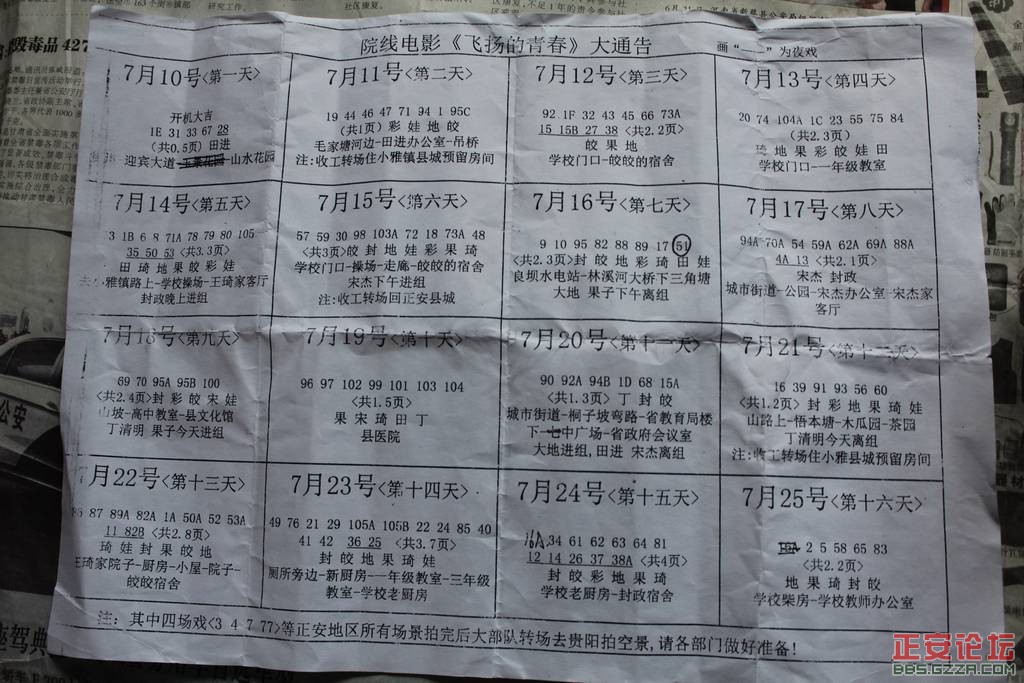 院线电影《飞扬的青春》大通告
画“——”为夜戏
7月10号<第一天>
开机大吉
1E 31 33 67 28
(共0.5页) 田进
迎宾大道-山水花园
7月11号<第二天>
19 44 46 47 71 94 1 95C
(共1页) 彩 娃 地 皎
毛家塘河边-田进办公室-吊桥
注:收工转场住小雅镇县城预留房间
7月12号<第三天>
92 1F 32 43 45 66 73A
15 15B 27 38 <共2.2页>
皎 果 地
学校门口-皎皎的宿舍
7月13号<第四天>
20 74 104A 1C 23 55 75 84
(共2.3页)
琦 地 果 彩 皎 娃 田
学校门口-一年级教室
7月14号<第五天>
1B 6 8 71A 78 79 80 105
35 50 53 <共3.3页>
田 琦 地 果 皎 彩 娃
小雅镇路上-学校操场-王琦家客厅
封政晚上进组
7月15号<第六天>
57 59 30 98 103A 72 18 73A 48
<共3页>皎 封 地 娃 彩 果 琦
学校门口-操场-走廊-皎皎的宿舍
宋杰下午进组
注:收工转场回正安县城
7月16号<第七天>
9 10 95 82 88 89 17 51
<共2.3页>封 皎 地 彩 琦 田 娃
良坝水电站-林溪河大桥下三角塘
大地 果子下午离组
7月17号<第八天>
94A 70A 54 59A 62A 69A 88A
4A 13 <共2.1页>
宋杰 封政
城市街道-公园-宋杰办公室-宋杰家
客厅
7月18号<第九天>
69 70 95A 95B 100
<共2.4页>封 彩 皎 宋 娃
山坡-高中教室-县文化馆
丁清明 果子今天进组
7月19号<第十天>
96 97 102 99 101 103 104
<共1.5页>
果 宋 琦 田 丁
县医院
7月20号<第十一天>
90 92A 94B 1D 68 15A
<共1.3页> 丁 封 皎
城市街道-桐子坡弯路-省教育局楼
下-七中广场-省政府会议室
大地进组,田进 宋杰离组
7月21号<第十二天>
16 39 91 93 56 60
<共1.2页> 封 彩 地 果 琦 娃
山路上-悟本塘-木瓜园-茶园
丁清明今天离组
注:收工转场住小雅县城预留房间
7月22号<第十三天>
87 89A 82A 1A 50A 52 53A
11 82B <共2.8页>
琦 娃 封 果 皎 地
王琦家院子-厨房-小屋-院子-
皎皎宿舍
7月23号<第十四天>
49 76 21 29 105A 105B 22 24 85 40
41 42 36 25 <共3.7页>
封 皎 地 果 琦 娃
厕所旁边-新厨房-一年级教室-三年级
教室-学校老厨房
7月24号<第十五天>
16A 34 61 62 63 64 81
12 14 26 37 38A <共4页>
封 皎 彩 地 果 琦
学校老厨房-封政宿舍
7月25号<第十六天>
2 5 58 65 83
<共2.2页>
地 果 琦 封 皎
学校柴房-学校教师办公室
注: 其中四场戏<3 4 7 77>等正安地区所有场景拍完后大部队转场去贵阳拍空景,请各部门做好准备!
毁毒品 427
公安
座驾典
正安论坛
BBS.GZZA.COM